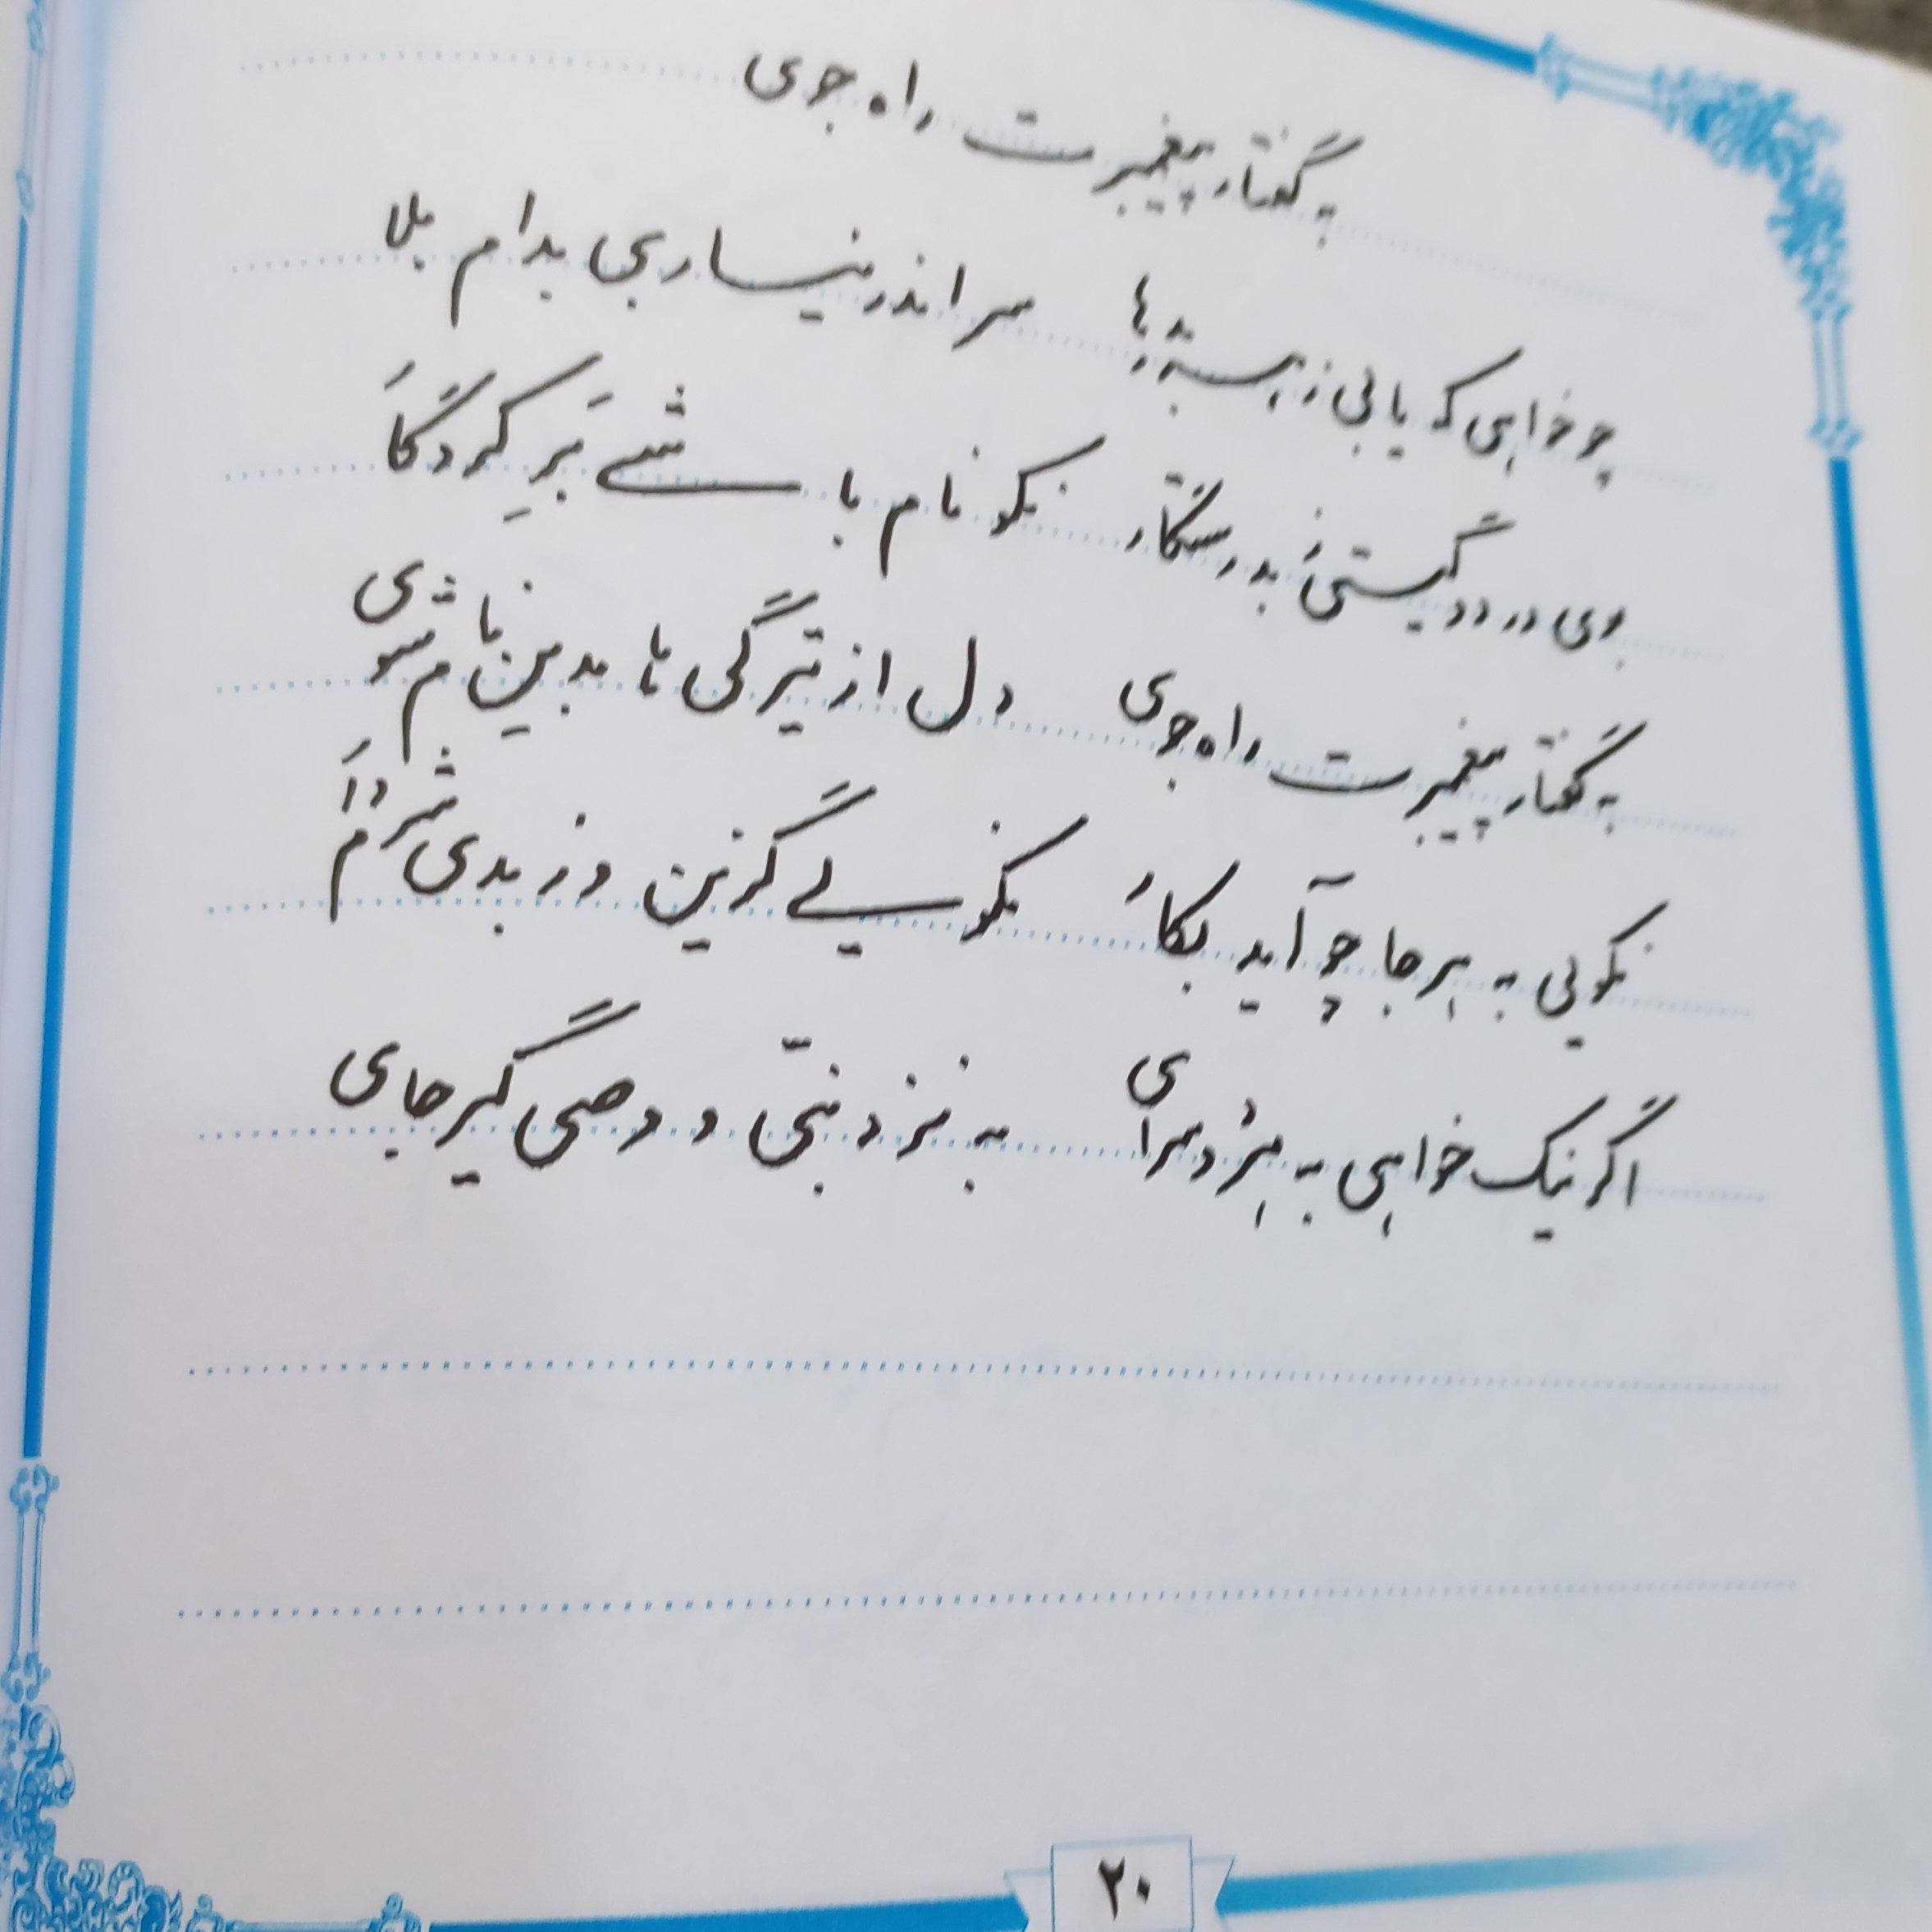 به گفتار پیغمبرت راه جوی
چو خواهی که یابی ز هر بد رها سر اندر نیاری بدام بلا
بوی در دو گیتی ز بد رستگار نکونام باشی بَرِ کردگار
به گفتار پیغمبرت راه جوی دل از تیرگی ها بدین آب شوی
نکویی به هر جا چو آید بکار نکویی گزین وز بدی شرم دار
اگر نیک خواهی به هر دو سرای به نزد نبیّ و وصی گیر جای
۲۰